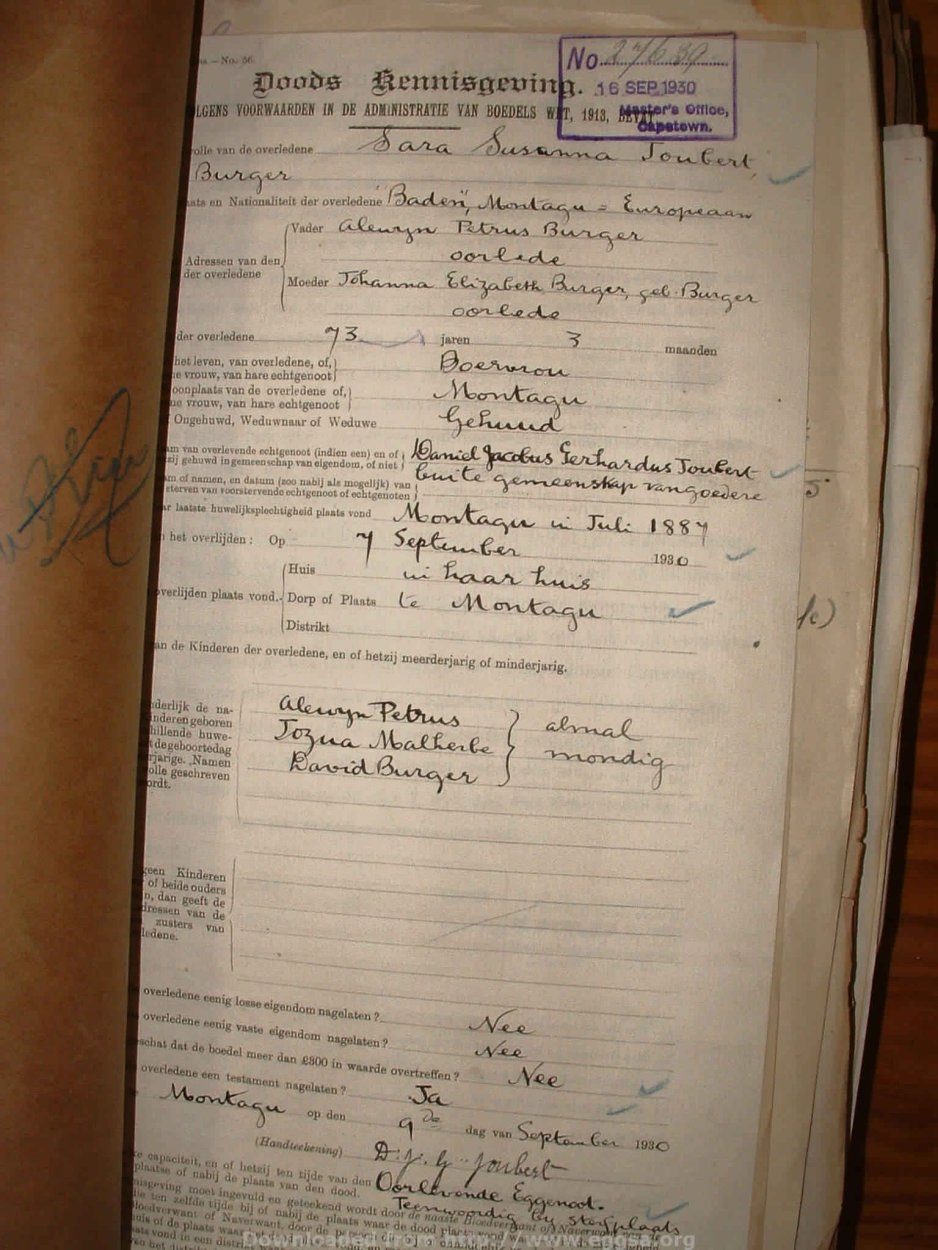 No. 56.
No. 27639
Doods Kennisgeving.
16 SEP 1930
Master's Office,
Capetown.
LGENS VOORWAARDEN IN DE ADMINISTRATIE VAN BOEDELS WET, 1913, BEVAT
olle van de overledene Sara Susanna Joubert,
Burger
aats en Nationaliteit der overledene "Baden", Montagu = Europeaan
Vader Alewyn Petrus Burger
oorlede
Adressen van den
der overledene
Moeder Johanna Elizabeth Burger, geb. Burger
oorlede
der overledene 73 jaren 3 maanden
het leven, van overledene, of,
ne vrouw, van hare echtgenoot
Boervrou
oonplaats van de overledene of,
ne vrouw, van hare echtgenoot
Montagu
Ongehuwd, Weduwnaar of Weduwe Gehuud
am van overlevende echtgenoot (indien een) en of
zij gehuwd in gemeenschap van eigendom, of niet
Daniel Jacobus Gerhardus Joubert
buite gemeenskap van goedere
m of namen, en datum (zoo nabij als mogelijk) van
terven van voorstervende echtgenoot of echtgenoten
ar laatste huwelijksplechtigheid plaats vond Montagu in Juli 1887
het overlijden: Op 7 September 1930
Huis in haar huis
verlijden plaats vond. Dorp of Plaats te Montagu
Distrikt
an de Kinderen der overledene, en of hetzij meerderjarig of minderjarig.
nderlijk de na-
nderen geboren
hillende huwe-
t de geboortedag
rjarige. Namen
olle geschreven
ordt.
Alewyn Petrus
Jozua Malherbe
David Burger
almal
mondig
geen Kinderen
of beide ouders
n, dan geeft de
dressen van de
zusters van
ledene.
overledene eenig losse eigendom nagelaten? Nee
overledene eenig vaste eigendom nagelaten? Nee
schat dat de boedel meer dan £300 in waarde overtreffen? Nee
overledene een testament nagelaten? Ja
Montagu op den 9de dag van September 1930
(Handteekening) D. J. G. Joubert
e capaciteit, en of hetzij ten tijde van den
plaatse of nabij de plaats van den dood.
Oorlewende Eggenoot.
Teenwoordig by sterfplaats
nisgeving moet ingevuld en geteekend wordt door de naaste Bloedverwant of
die ten zelfde tijde bij of nabij de plaats waar de dood plaats
Bloedverwant of Naverwant, door de
Downloaded from http://www.eggsa.org